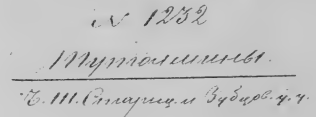 № 1232
Тутолмины.
Ч. III. Стариц. и Зубцов. у. у.